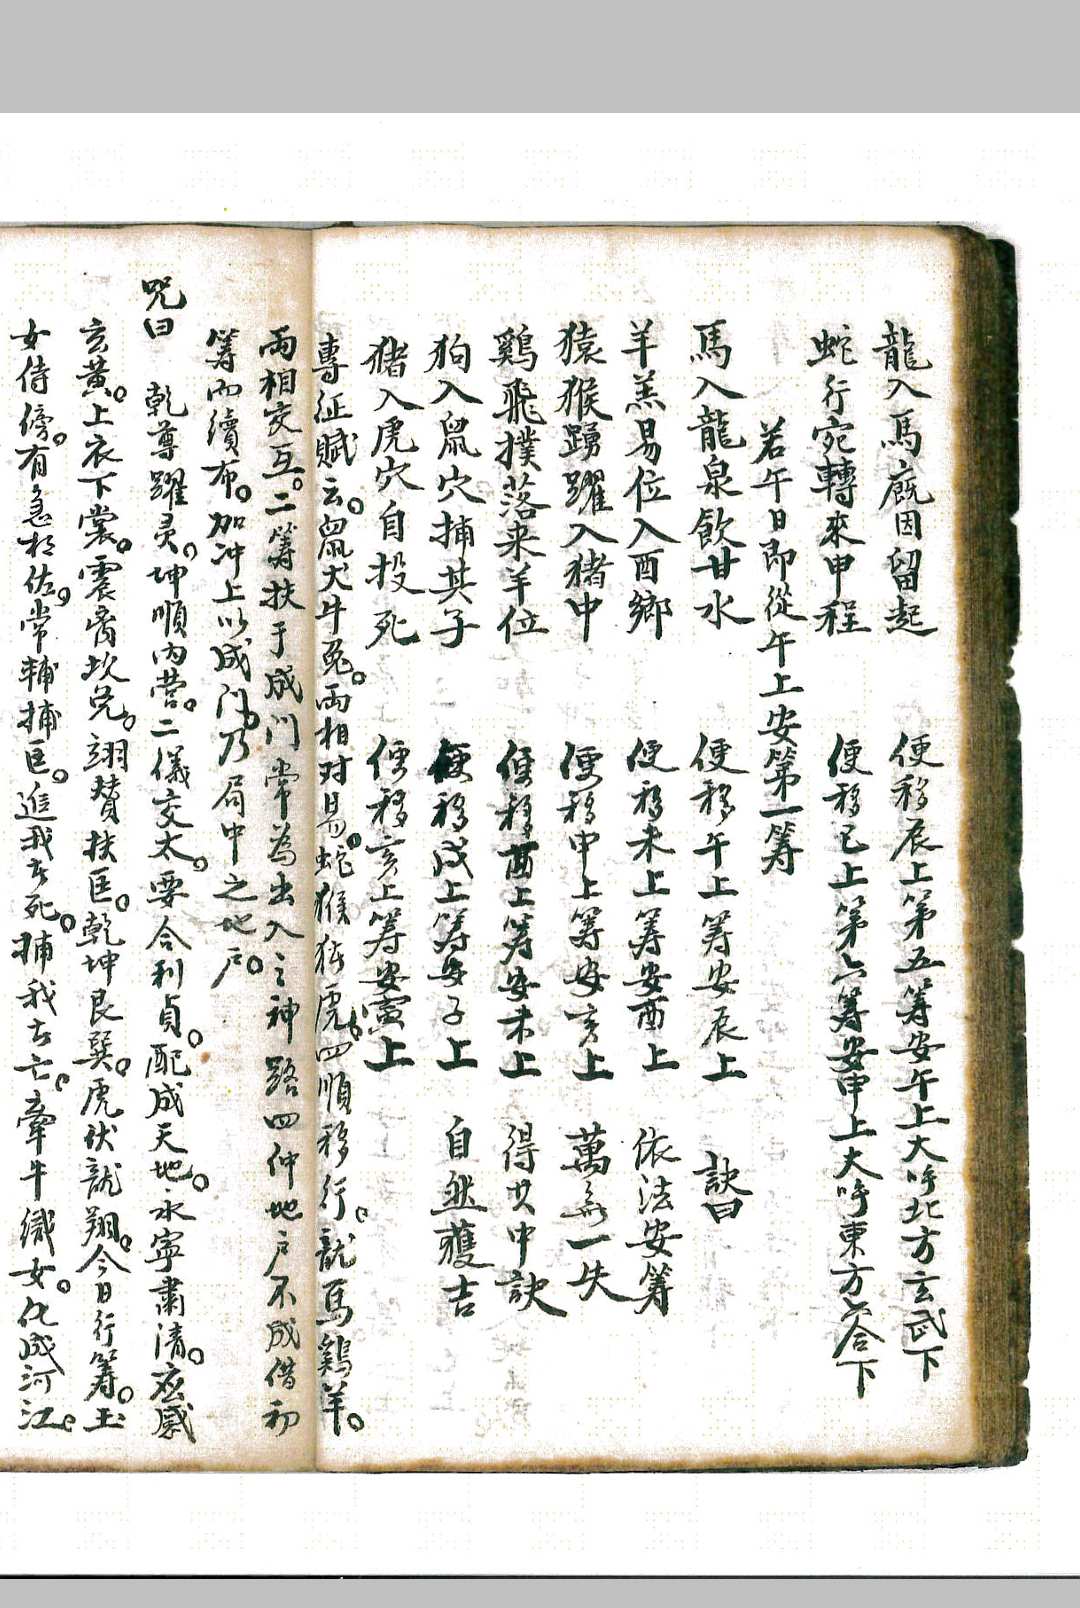 龍入馬廐因留起　便移辰上第五筹安午上大呼北方玄武下
蛇行宛轉來申程　便移巳上第六筹安申上大呼東方六合下
若午日即從午上安第一筹
馬入龍泉飲甘水　便移午上筹安辰上　訣曰
羊羔易位入酉鄉　便移未上筹安酉上　依法安筹
猿猴踴躍入猪中　便移申上筹安亥上　萬無一失
鷄飛撲落来羊位　便移酉上筹安未上　得其中訣
狗入鼠穴捕其子　便移戌上筹安子上　自然獲吉
猪入虎穴自投死　便移亥上筹安寅上
專征賦云。鼠犬牛兔。兩相对易。蛇猴猪虎。四順移行。龍馬鷄羊。
兩相交互。二筹扶于成门常為出入之神路四仲地户不成借初
筹而續布。加冲上以成门。乃局中之地户。
咒曰　乾尊躍灵。坤順内营。二儀交太。要令利貞。配成天地。永寧肅清。應感
玄黄。上衣下裳。震离坎兑。翊赞扶匡。乾坤艮巽。虎伏龍翔。今日行筹。玉
女侍傍。有急相佐。常輔捕匡。進我者死。捕我者亡。牽牛織女。化成河江。